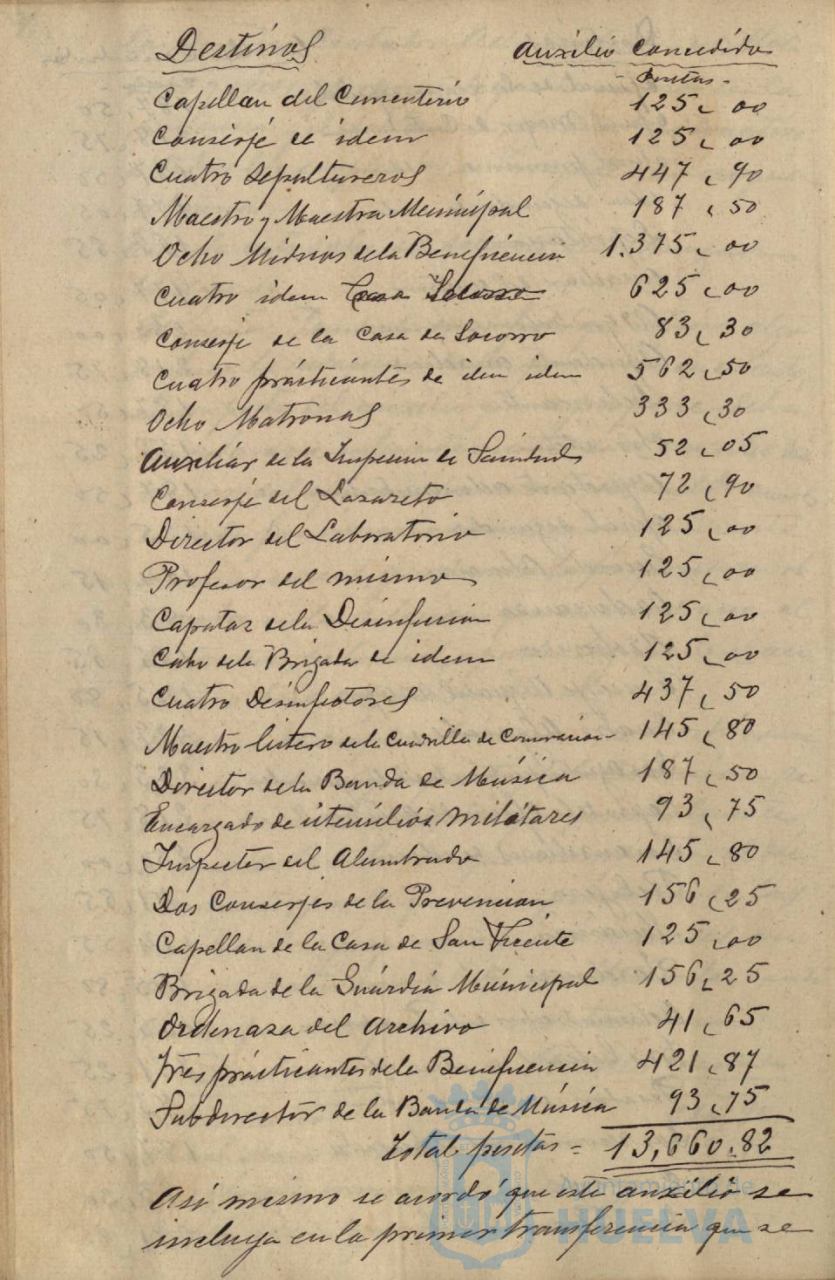 Destinos Auxilio Concedido
Pesetas
Capellan del Cementerio 125,00
Conserje de idem 125,00
Cuatro Sepultureros 447,90
Maestro y Maestra Municipal 187,50
Ocho Médicos de la Beneficencia 1.375,00
Cuatro idem Casa Socorro 625,00
Conserje de la Casa de Socorro 83,30
Cuatro prácticantes de idem idem 562,50
Ocho Matronas 333,30
Auxiliar de la Inspección de Sanidad 52,05
Conserje del Lazareto 72,90
Director del Laboratorio 125,00
Profesor del mismo 125,00
Capataz de la Desinfección 125,00
Cabo de la Brigada de idem 125,00
Cuatro Desinfectores 437,50
Maestro listero de la Cuadrilla de 145,80
Director de la Banda de Música 187,50
Encargado de utensilios militares 93,75
Inspector del Alumbrado 145,80
Dos Conserjes de la Prevencion 156,25
Capellan de la Casa de San Vicente 125,00
Brigada de la Guárdia Múnicipal 156,25
Ordenanza del Archivo 41,65
Tres prácticantes de la Beneficencia 421,87
Subdirector de la Banda de Música 93,75
Total pesetas = 13,660.82
Asi mismo se acordó que este auxilio se
incluya en la primer transferencia que se
Ayuntamiento de
HUELVA